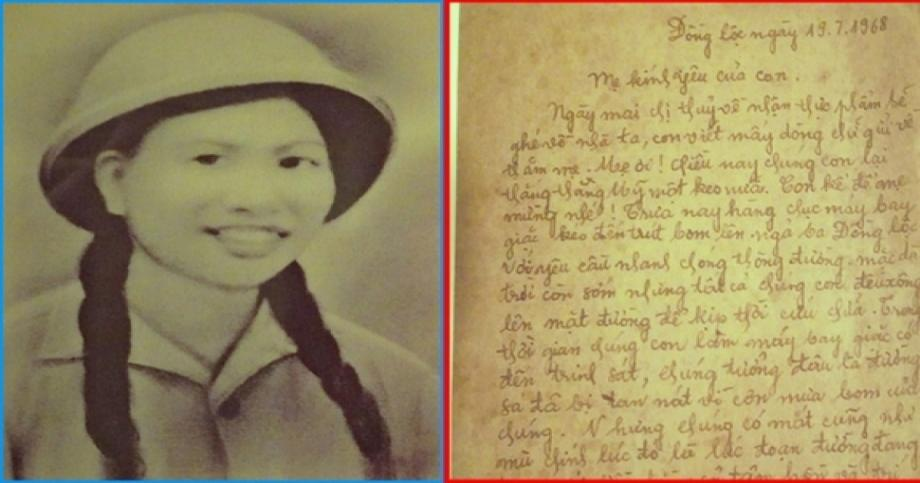 Đồng lộc ngày 19.7.1968
Mẹ kính yêu của con.
Ngày mai chị thuý về nhận thực phẩm sẽ
ghé về nhà ta, con viết mấy dòng chữ gửi về
thăm mẹ. Mẹ ơi! Chiều nay chúng con lại
thắng thằng Mỹ một keo nữa. Con kể để mẹ
mừng nhé! Trưa nay hàng chục máy bay
giặc kéo đến trút bom lên ngã ba Đồng lộc
với yêu cầu nhanh chóng thông đường. mặc dù
trời còn sớm nhưng tất cả chúng con đều xông
lên mặt đường để kịp thời cứu chữa. Trong
thời gian chúng con làm máy bay giặc có
đến trinh sát, chúng tưởng đâu là đường
sá đã bị tan nát vì cơn mưa bom của
chúng. Nhưng chúng có mắt cũng như
mù chính lúc đó là lúc đoạn đường đang
tâm hồn và trí